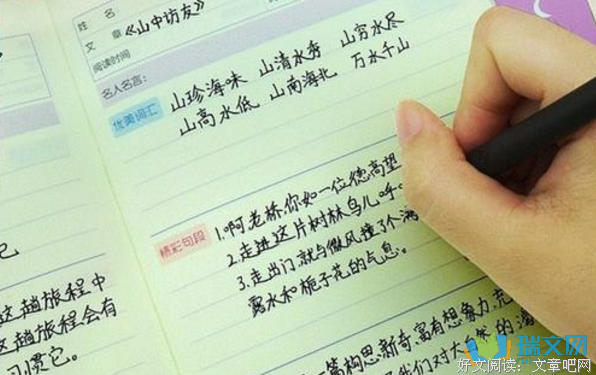 姓名
文章《山中访友》
阅读时间
名人名言:
优美词汇
山珍海味 山清水秀 山穷水尽
山高水低 山南海北 万水千山
精彩句段
1.啊老桥你如一位德高望
2.走进这片树林鸟儿呼
3.走出门就与微风撞了个满
露水和栀子花的气息。
这趟旅程中
这趟旅程会有
习惯它。
篇构思新奇,富有想象力,充
我们对大自然的
瑞文网
好文阅读:文章吧网